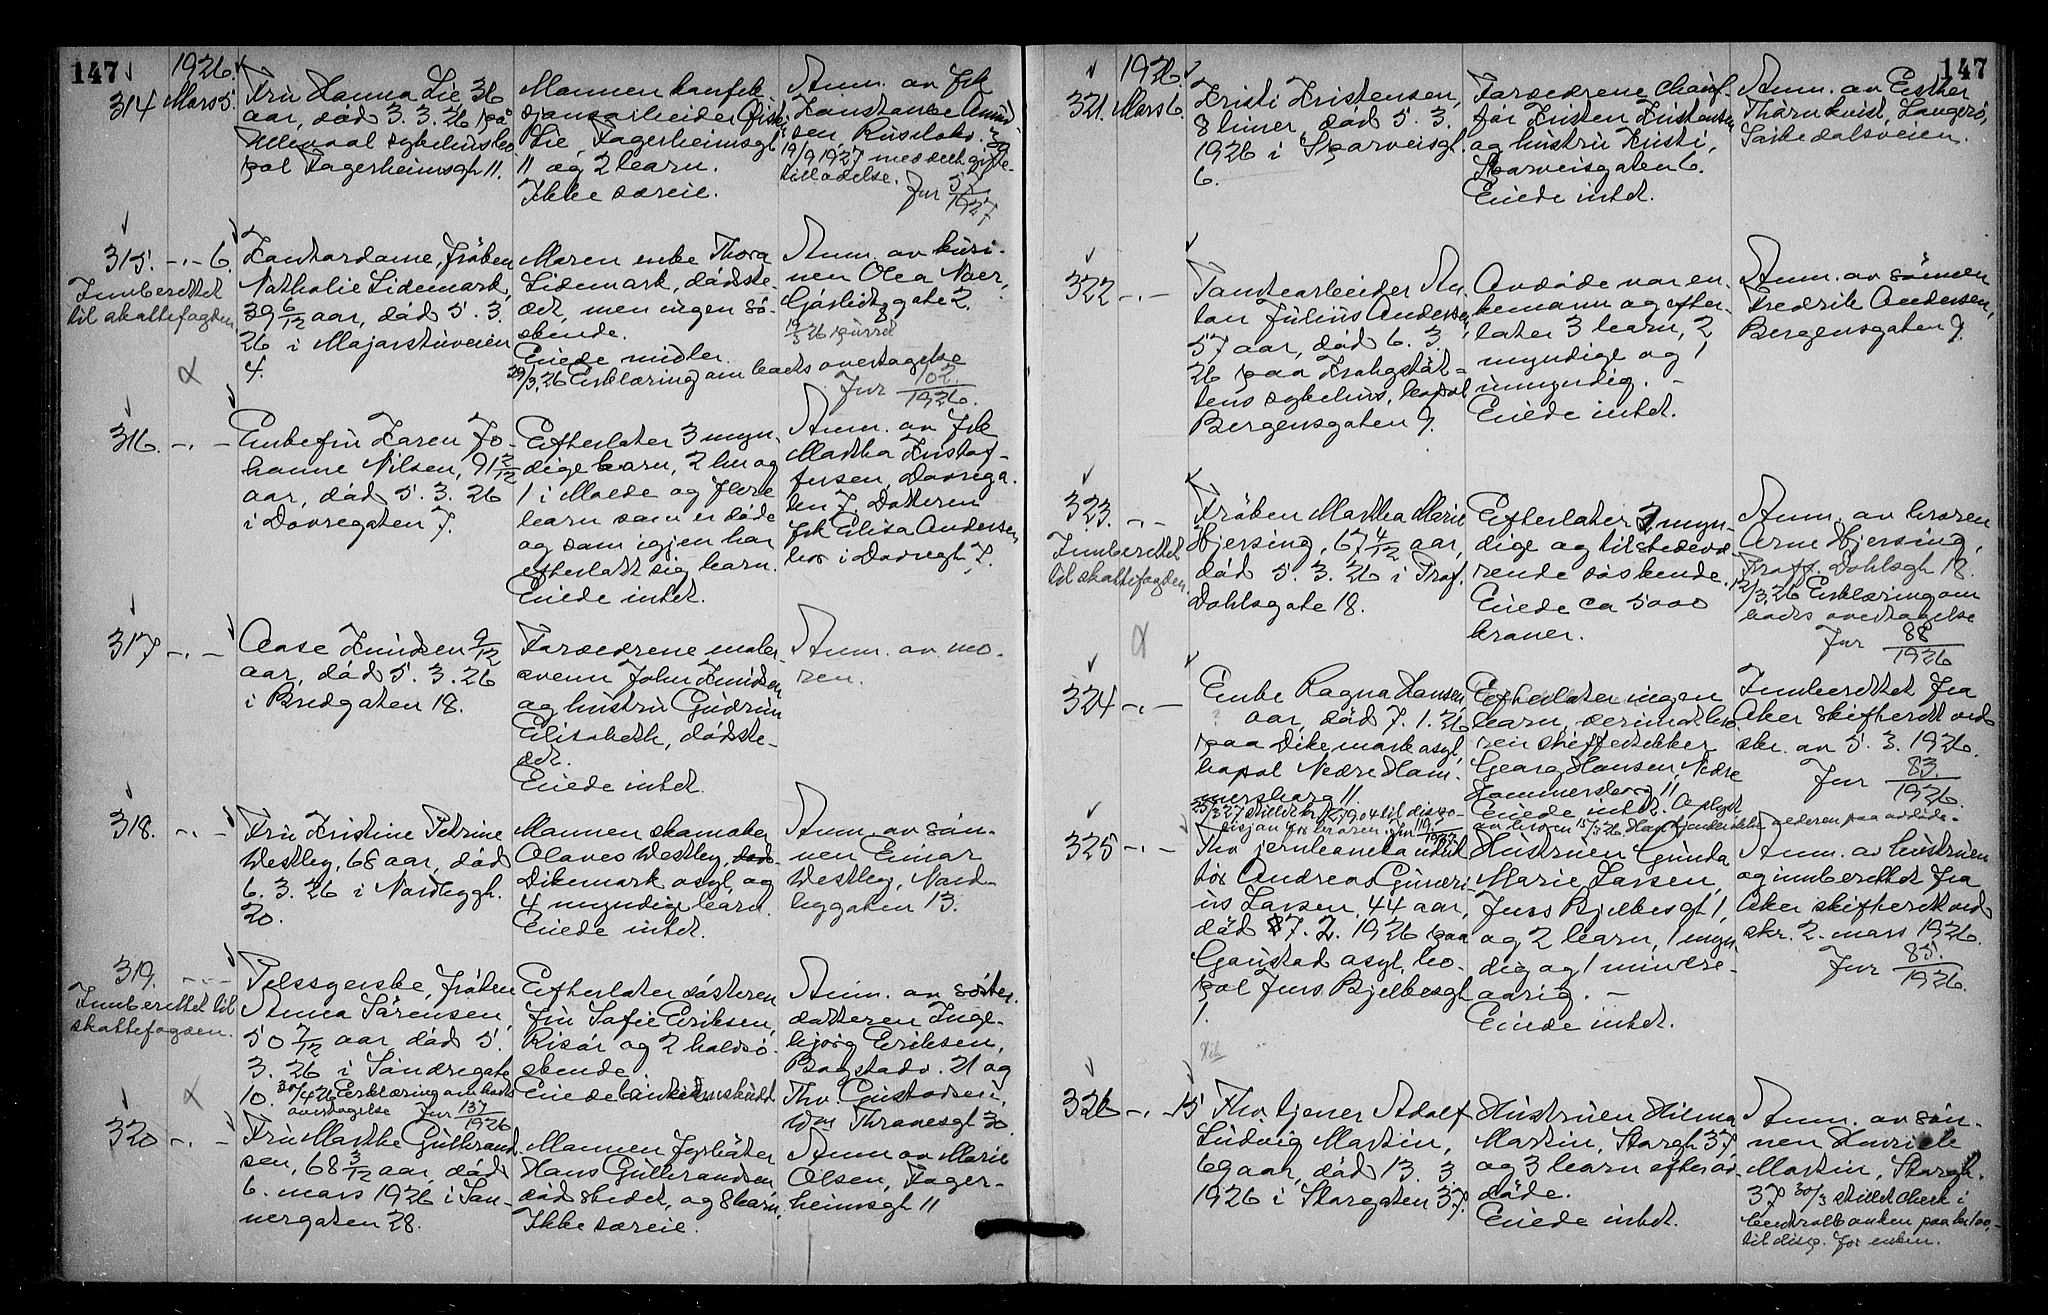 147
1926.
314 Mars 5.
Fru Hanna Lie 36
aar, død 3. 3. 26 paa
Ullevaal sykehus bo
pæl Fagerheimsgt. 11.
Mannen
Lie, Fagerheimsgt.
11 og 2 barn.
Ikke særeie.
Anm. av frk
19/9 1927 meddelt gifte-
tilladelse.
Jnr 57
1927
315. -"- 6.
Innberettet
til skattefogden
Kontordame, frøken
Nathalie Lidemark,
39 6/12 aar, død 5. 3.
26 i Majorstuveien
4.
Moren enke Thora
Lidemark, dødste-
det, men ingen sø-
skende.
Eiede midler.
29/3 26 Erklæring om boets overtagelse
Jnr 102
1926.
Anm. av kusi-
nen Olea Noer,
Gørbitzgate 2.
19/3 26 purret
316. -"-
Enkefru Karen Jo-
hanne Nilsen, 91 2/12
aar, død 5. 3. 26
i Dovregaten 7.
Efterlater 3 myn-
dige barn, 2 her og
1 i Molde og flere
barn som er døde
og som igjen har
efterlatt sig barn.
Eiede intet.
Anm. av frk
Martha Kristof-
fersen, Dovrega-
ten 7. Datteren
frk Elisa Andersen
bor i Dovregt. 7.
317 -"-
Aase Knudsen 9/12
aar, død 5. 3. 26
i Bredgaten 18.
Forældrene maler-
svenn John Knudsen
og hustru Gudrun
Elisabeth, dødste-
det.
Eiede intet.
Anm. av mo-
ren.
318. -"-
Fru Kristine Petrine
Westby, 68 aar, død
6. 3. 26 i Nordbygt.
20.
Mannen skomaker
Olaves Westby,
Dikemark asyl, og
4 myndige barn.
Eiede intet.
Anm. av søn-
nen Einar
Westby, Nord-
bygaten 13.
319. -"-
Innberettet til
skattefogden.
Pelssyerske, frøken
Anna Sørensen,
50 7/12 aar, død 5.
3. 26 i Søndregate
10. 30/4 26 Erklæring om boets
overtagelse Jnr 137
1926
Efterlater søsteren
fru Sofie Eriksen,
Risør og 2 halvsø-
skende.
Anm. av søster-
datteren Inge-
bjørg Eriksen,
Bogstadv. 21 og
Thv. Gustavsen,
Wm Thranesgt. 30.
320 -"-
Fru Marthe Gulbrand-
sen, 68 3/12 aar, død
6. mars 1926 i San-
nergaten 28.
Mannen fyrbøter
Hans Gulbrandsen
dødstedet, og 8 barn.
Ikke særeie.
Anm. av Marie
Olsen, Fager-
heimsgt 11
147
1926
321. Mars 6.
Kristi Kristensen,
8 timer, død 5. 3.
1926 i Sporveisgt.
6.
Forældrene chauf-
før Kristen Kristensen
og hustru Kristi,
Sporveisgaten 6.
Eiede intet.
Anm. av Esther
Thörnkvist, Langerö,
Sørkedalsveien.
322 -"-
Tomtearbeider An-
ton Julius Andersen,
57 aar, død 6. 3.
26 paa Krohgstøt-
tens sykehus, bopæl
Bergensgaten 9.
Avdøde var en-
kemann og efter-
later 3 barn, 2
myndige og 1
umyndig. -
Eiede intet.
Anm. av sønnen
Fredrik Andersen,
Bergensgaten 9.
323. -"-
Innberettet
til skattefogden.
Frøken Martha Marie
Hjersing, 67 4/12 aar,
død 5. 3. 26 i Prof.
Dahlsgate 18.
Efterlater 2 myn-
dige og tilstedevæ-
rende søskende.
Eiede ca 5000
kroner.
Anm. av broren
Arne Hjersing,
Proff. Dahlsgt 18.
12/3 26 Erklæring om
boets overtagelse
Jnr 88
1926
324 -"-
Enke Ragna Hansen
? aar, død 7. 1. 26
paa Dikemark asyl,
bopæl Nedre Ham-
mersborg 11.
Efterlater ingen
barn, derimot bro-
ren skiffertekker
Georg Hansen, Nedre
Hammersborg 11
Eiede intet. Oplyst
av broren
Innberettet fra
Aker skifterett ved
skr. av 5. 3. 1926.
Jnr 83
1926.
325 -"-
Thv jernbanekonduk-
tør Andreas Guneri-
us Larsen, 44 aar,
død 7. 2. 1926 paa
Gaustad asyl, bo-
pæl Jens Bjelkesgt
1.
Hustruen Gunda
Marie Larsen,
Jens Bjelkesgt 1,
og 2 barn, 1 myn-
dig og 1 mindre-
aarig. -
Eiede intet.
Anm. av hustruen
og innberettet fra
Aker skifterett ved
skr. 2. mars 1926.
Jnr 85.
1926.
326 -"- 15
Fhv tjener Adolf
Ludvig Martin,
69 aar, død 13. 3.
1926 i Storgaten 37.
Hustruen Hilma
Martin, Storgt. 37
og 3 barn efter av-
døde.
Eiede intet.
Anm. av søn-
nen Henrik
Martin, Storgt.
37 30/3 stillet check i
Centralbanken paa kr 100,-
til disp. for enken.